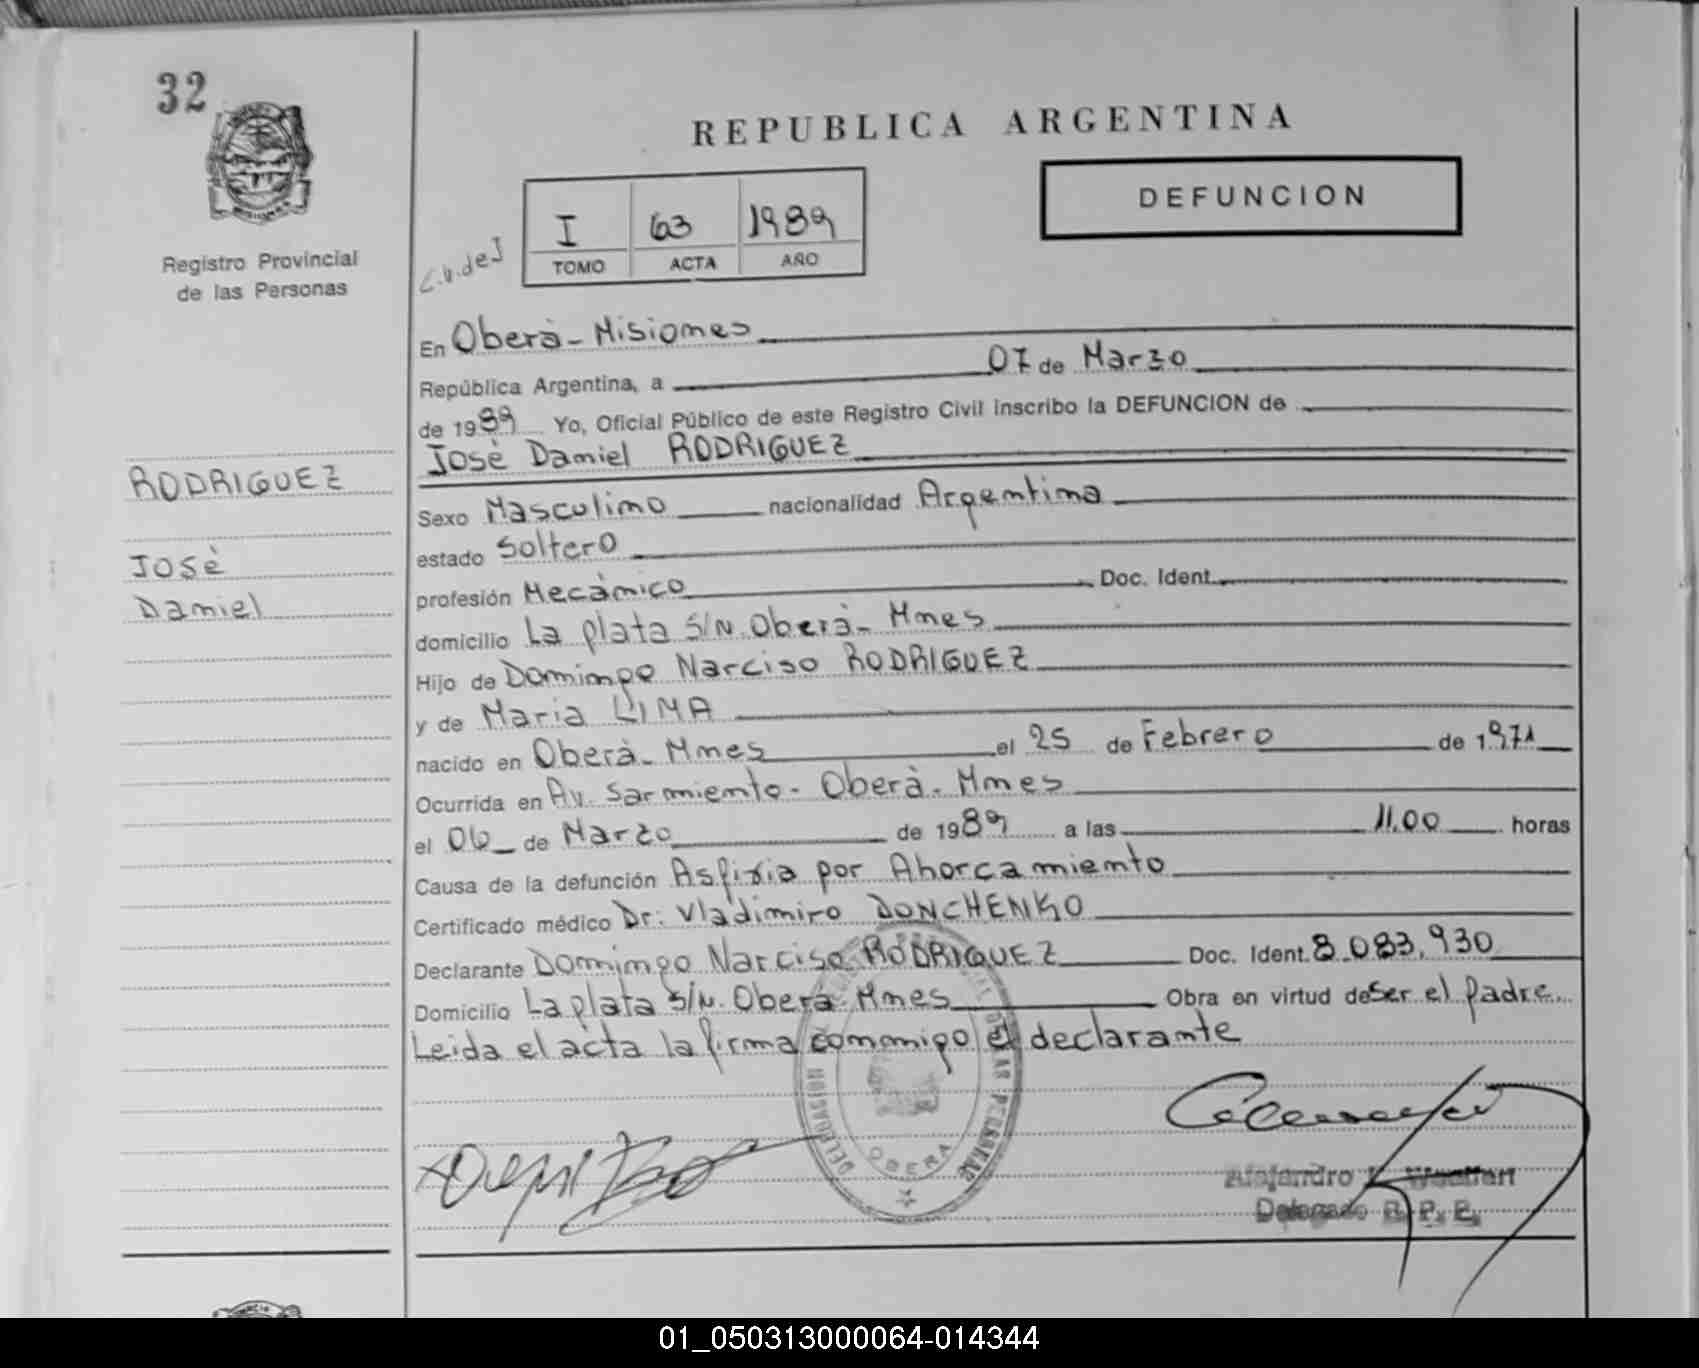 32
REPUBLICA ARGENTINA
DEFUNCION
I 63 1989
TOMO ACTA AÑO
Registro Provincial
de las Personas
En Oberà - Misiones
República Argentina, a 07 de Marzo
de 1989 Yo, Oficial Público de este Registro Civil inscribo la DEFUNCION de
Josè Daniel RODRIGUEZ
RODRIGUEZ
Josè
Daniel
Sexo Masculino nacionalidad Argentina
estado Soltero
profesión Mecànico Doc. Ident.
domicilio La plata S/N. Oberà - Mnes
Hijo de Domingo Narciso RODRIGUEZ
y de Maria LIMA
nacido en Oberà - Mnes el 25 de Febrero de 1971
Ocurrida en Av. Sarmiento - Oberà - Mnes
el 06 de Marzo de 1989 a las 11.00 horas
Causa de la defunción Asfixia por Ahorcamiento
Certificado médico Dr: Vladimiro DONCHENKO
Declarante Domingo Narciso RODRIGUEZ Doc. Ident. 8.083.930
Domicilio La plata S/N. Oberà Mnes Obra en virtud de Ser el padre
Leida el acta la firma conmigo el declarante
DELEGACION
OBERA
Alejandro
Delegado R. P. P.
01_050313000064-014344